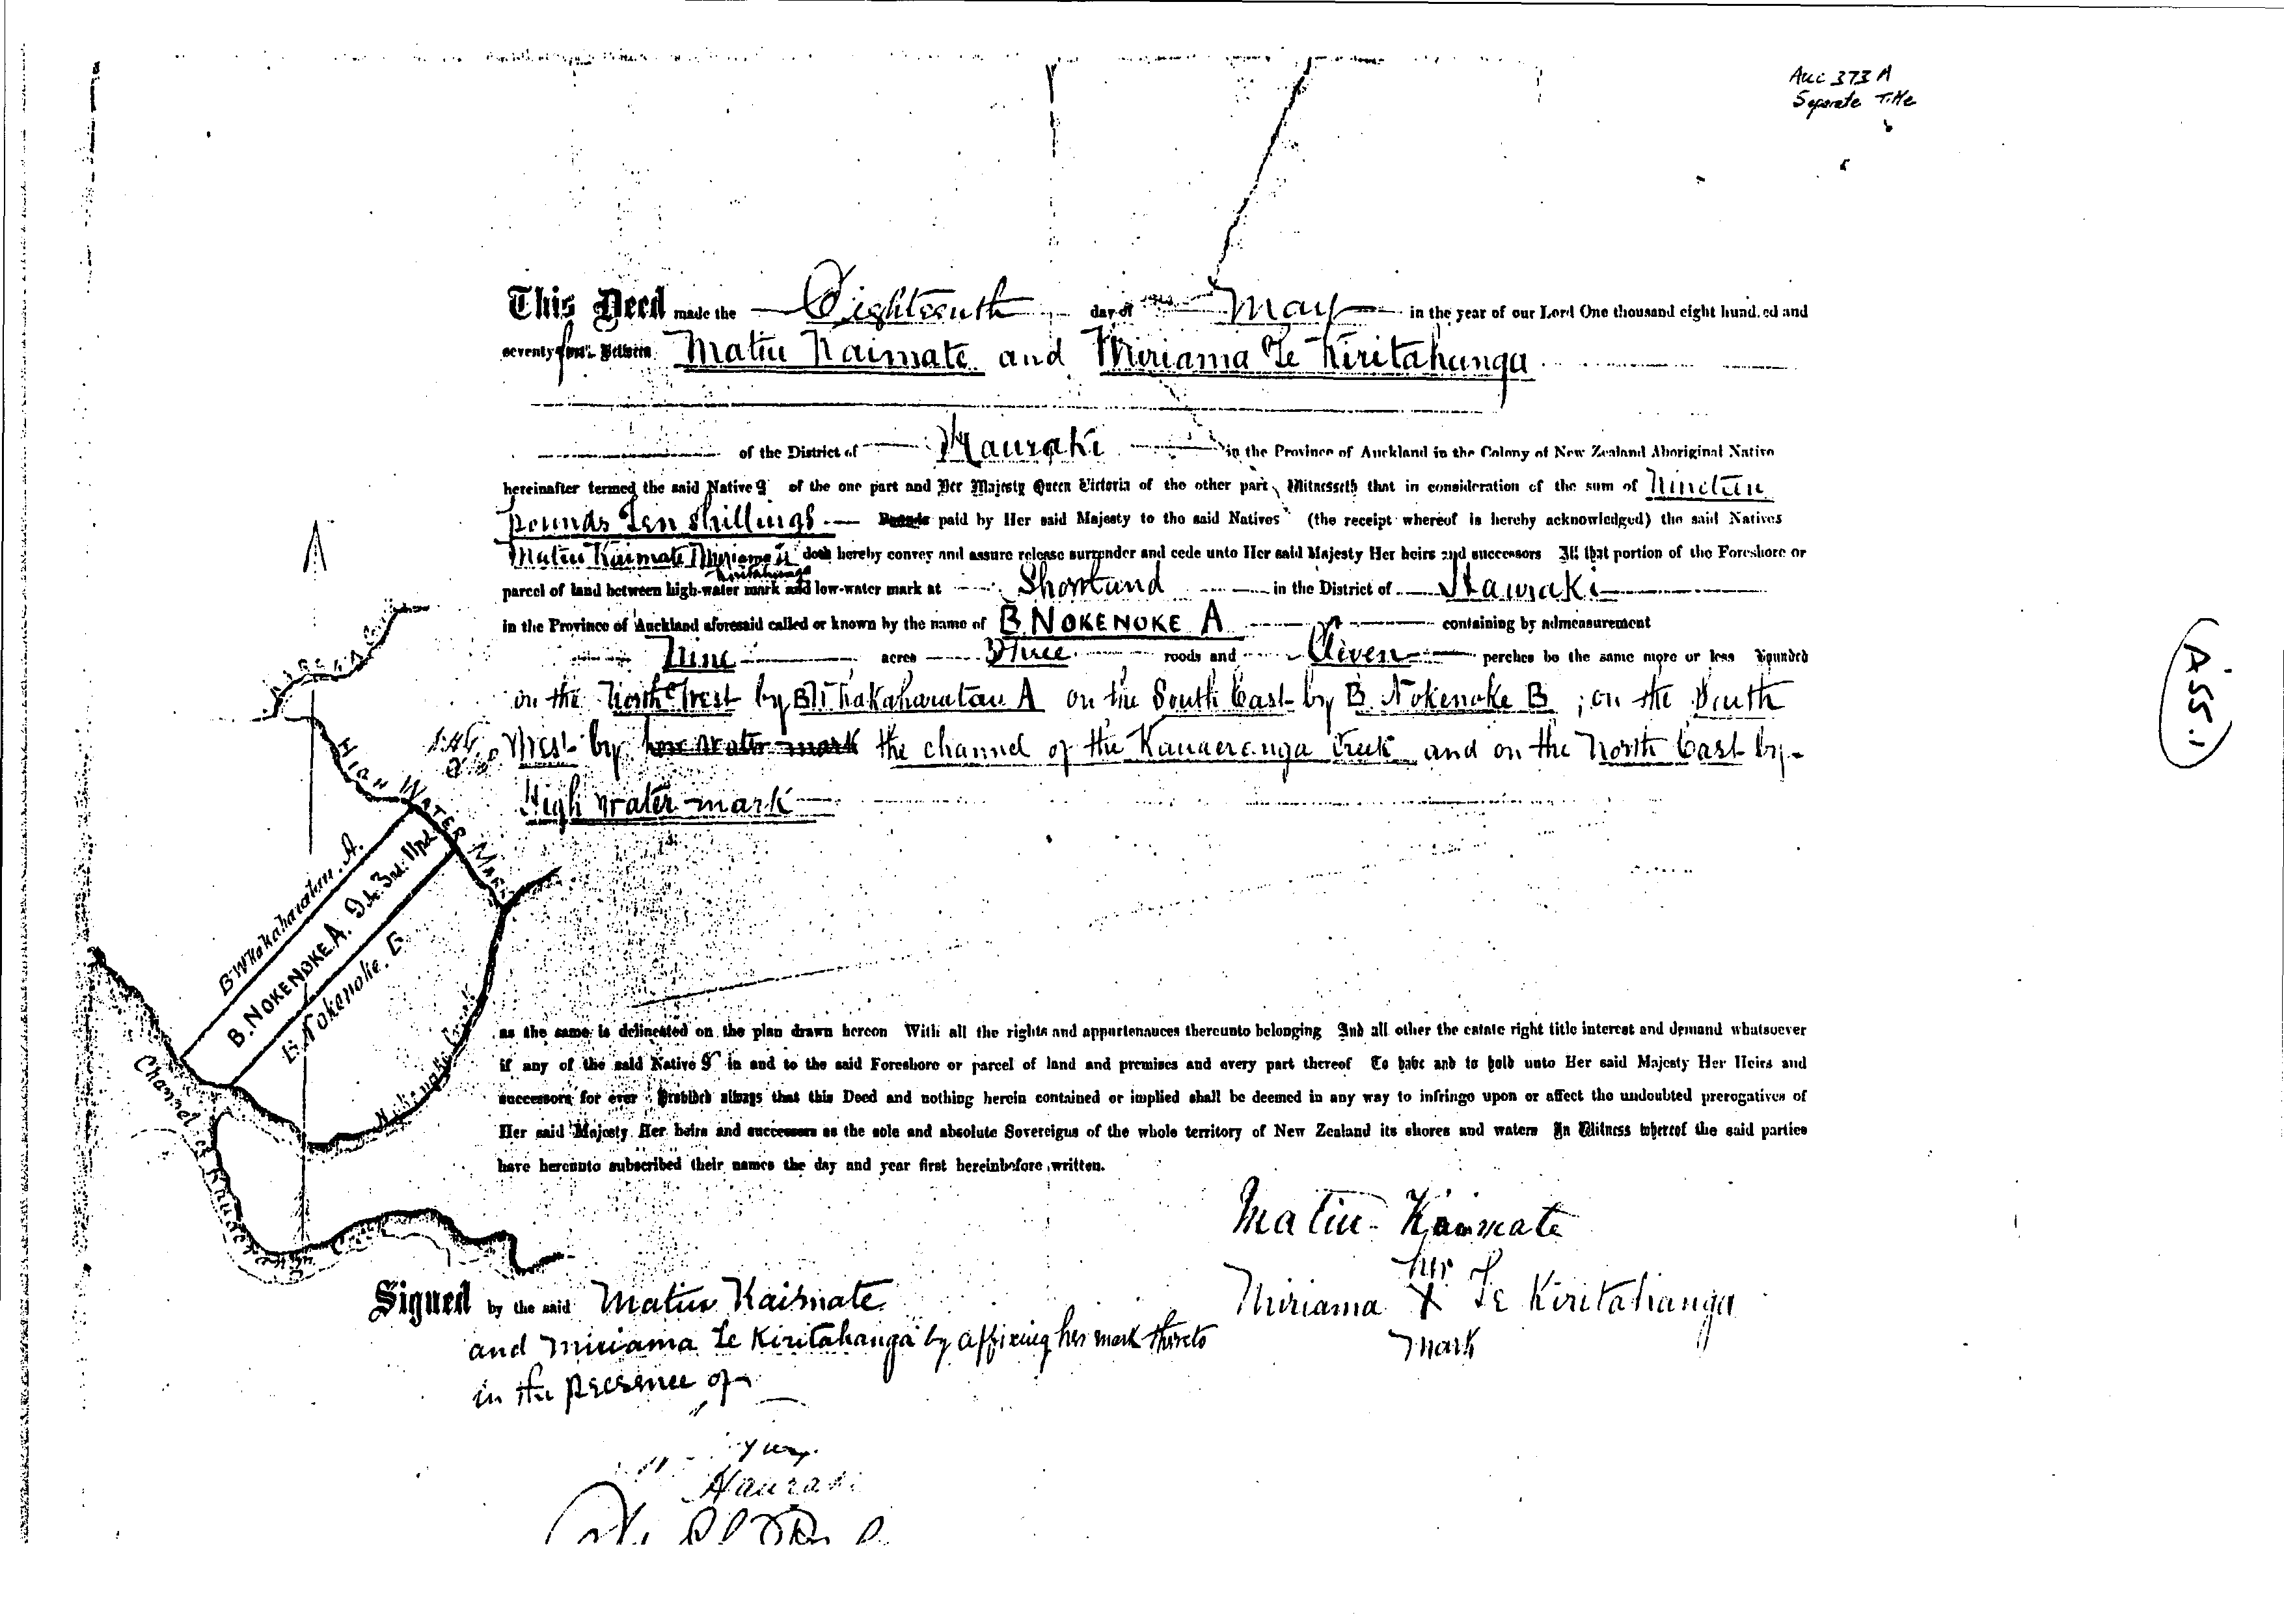 Auc 373 A
Separate Title
This Deed made the Eighteenth day of May in the year of our Lord One thousand eight hundred and
seventy four Between Matiu Kaimate and Miriama Te Kiritahanga
of the District of Hauraki in the Province of Auckland in the Colony of New Zealand Aboriginal Native
hereinafter termed the said Natives of the one part and Her Majesty Queen Victoria of the other part Witnesseth that in consideration of the sum of Nineteen
pounds Ten shillings Pounds paid by Her said Majesty to the said Natives (the receipt whereof is hereby acknowledged) the said Natives
Matiu Kaimate Miriama Te Kiritahanga doth hereby convey and assure release surrender and cede unto Her said Majesty Her heirs and successors All that portion of the Foreshore or
parcel of land between high-water mark and low-water mark at Shortland in the District of Hauraki
in the Province of Auckland aforesaid called or known by the name of B NOKENOKE A containing by admeasurement
Nine acres Three roods and Eleven perches be the same more or less Bounded
on the North West by B Whakaharatau A on the South East by B Nokenoke B; on the South
West by low water mark the channel of the Kauaeranga Creek and on the North East by
High water mark
HIGH WATER MARK
B Whakaharatau. A.
B. NOKENOKE. A. 9a. 3rd. 11pd.
B. Nokenoke. B
Channel of Kauaeranga Creek
as the same is delineated on the plan drawn hereon With all the rights and appurtenances thereunto belonging And all other the estate right title interest and demand whatsoever
if any of the said Natives in and to the said Foreshore or parcel of land and premises and every part thereof To have and to hold unto Her said Majesty Her Heirs and
successors for ever Provided always that this Deed and nothing herein contained or implied shall be deemed in any way to infringe upon or affect the undoubted prerogatives of
Her said Majesty Her heirs and successors as the sole and absolute Sovereigns of the whole territory of New Zealand its shores and waters In Witness whereof the said parties
have hereunto subscribed their names the day and year first hereinbefore written.
Matiu Kaimate
her
Miriama X Te Kiritahanga
mark
Signed by the said Matiu Kaimate
and Miriama Te Kiritahanga by affixing her mark thereto
in the presence of
Hauraki
ASS.1